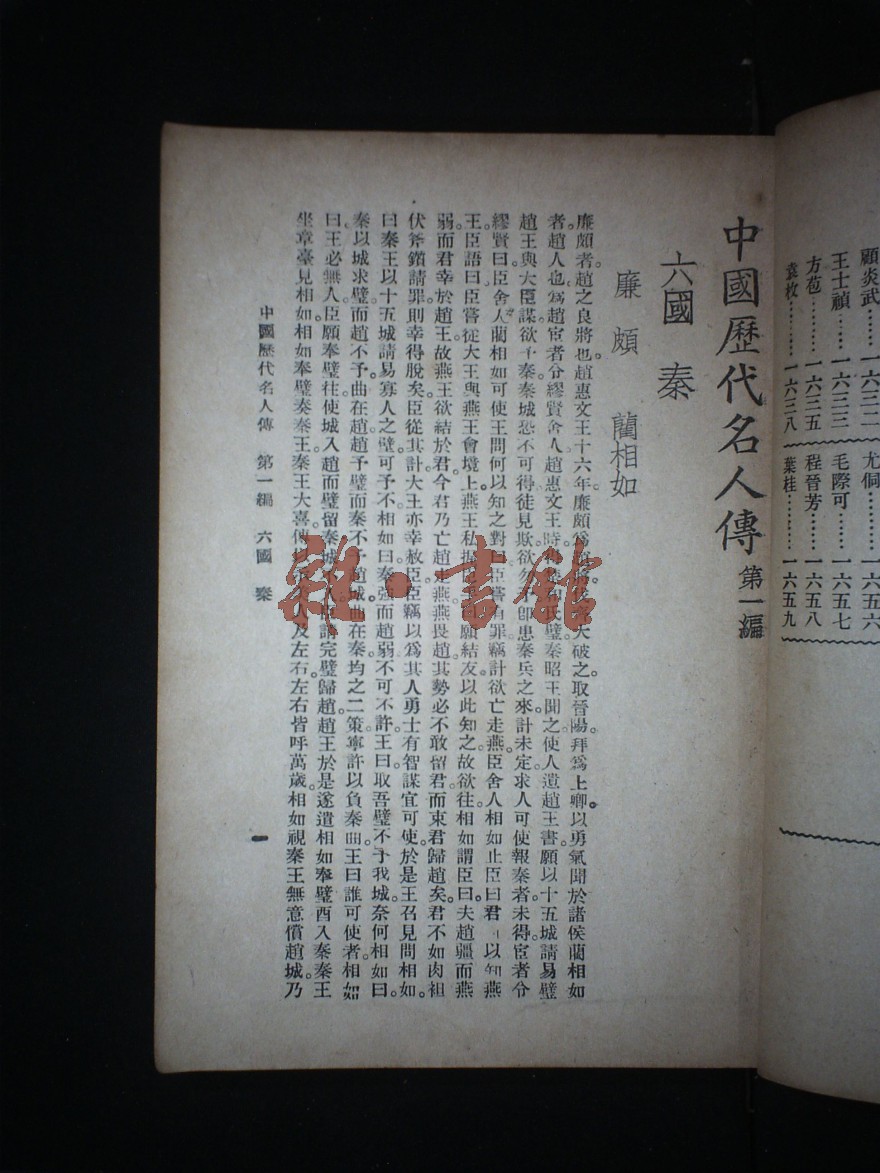 顧炎武……一六三二
王士禎……一六三三
方苞………一六三五
袁枚………一六三八
尤侗………一六五六
毛際可……一六五七
程晉芳……一六五八
葉桂………一六五九
中國歷代名人傳 第一編
六國 秦
廉頗 藺相如
廉頗者。趙之良將也。趙惠文王十六年。廉頗爲大破之。取晉陽。拜爲上卿。以勇氣聞於諸侯。藺相如
者。趙人也。爲趙宦者令繆賢舍人。趙惠文王時。氏璧。秦昭王聞之。使人遺趙王書。願以十五城請易璧。
趙王與大臣謀。欲予秦。秦城恐不可得。徒見欺。欲勿予。卽患秦兵之來。計未定。求人可使報秦者。未得。宦者令
繆賢曰。臣舍人藺相如可使。王問何以知之。對曰。臣嘗有罪。竊計欲亡走燕。臣舍人相如止臣曰。君以知燕
王。臣語曰。臣嘗從大王與燕王會境上。燕王私握願結友。以此知之。故欲往。相如謂臣曰。夫趙彊而燕
弱。而君幸於趙王。故燕王欲結於君。今君乃亡趙燕。燕畏趙。其勢必不敢留君。而束君歸趙矣。君不如肉袒
伏斧鑕請罪。則幸得脫矣。臣從其計。大王亦幸赦臣。臣竊以爲其人勇士。有智謀。宜可使。於是王召見。問相如
曰。秦王以十五城請易寡人之璧。可予不。相如曰。秦強而趙弱。不可不許。王曰。取吾璧。不予我城。奈何。相如曰。
秦以城求璧而趙不予。曲在趙。趙予璧而秦不予趙城。曲在秦。均之二策。寧許以負秦曲。王曰。誰可使者。相如
曰。王必無人。臣願奉璧往使。城入趙而璧留秦。城入。臣請完璧歸趙。趙王於是遂遣相如奉璧西入秦。秦王
坐章臺見相如。相如奉璧奏秦王。秦王大喜。傳人及左右。左右皆呼萬歲。相如視秦王無意償趙城。乃
中國歷代名人傳 第一編 六國 秦
一
雜·書館